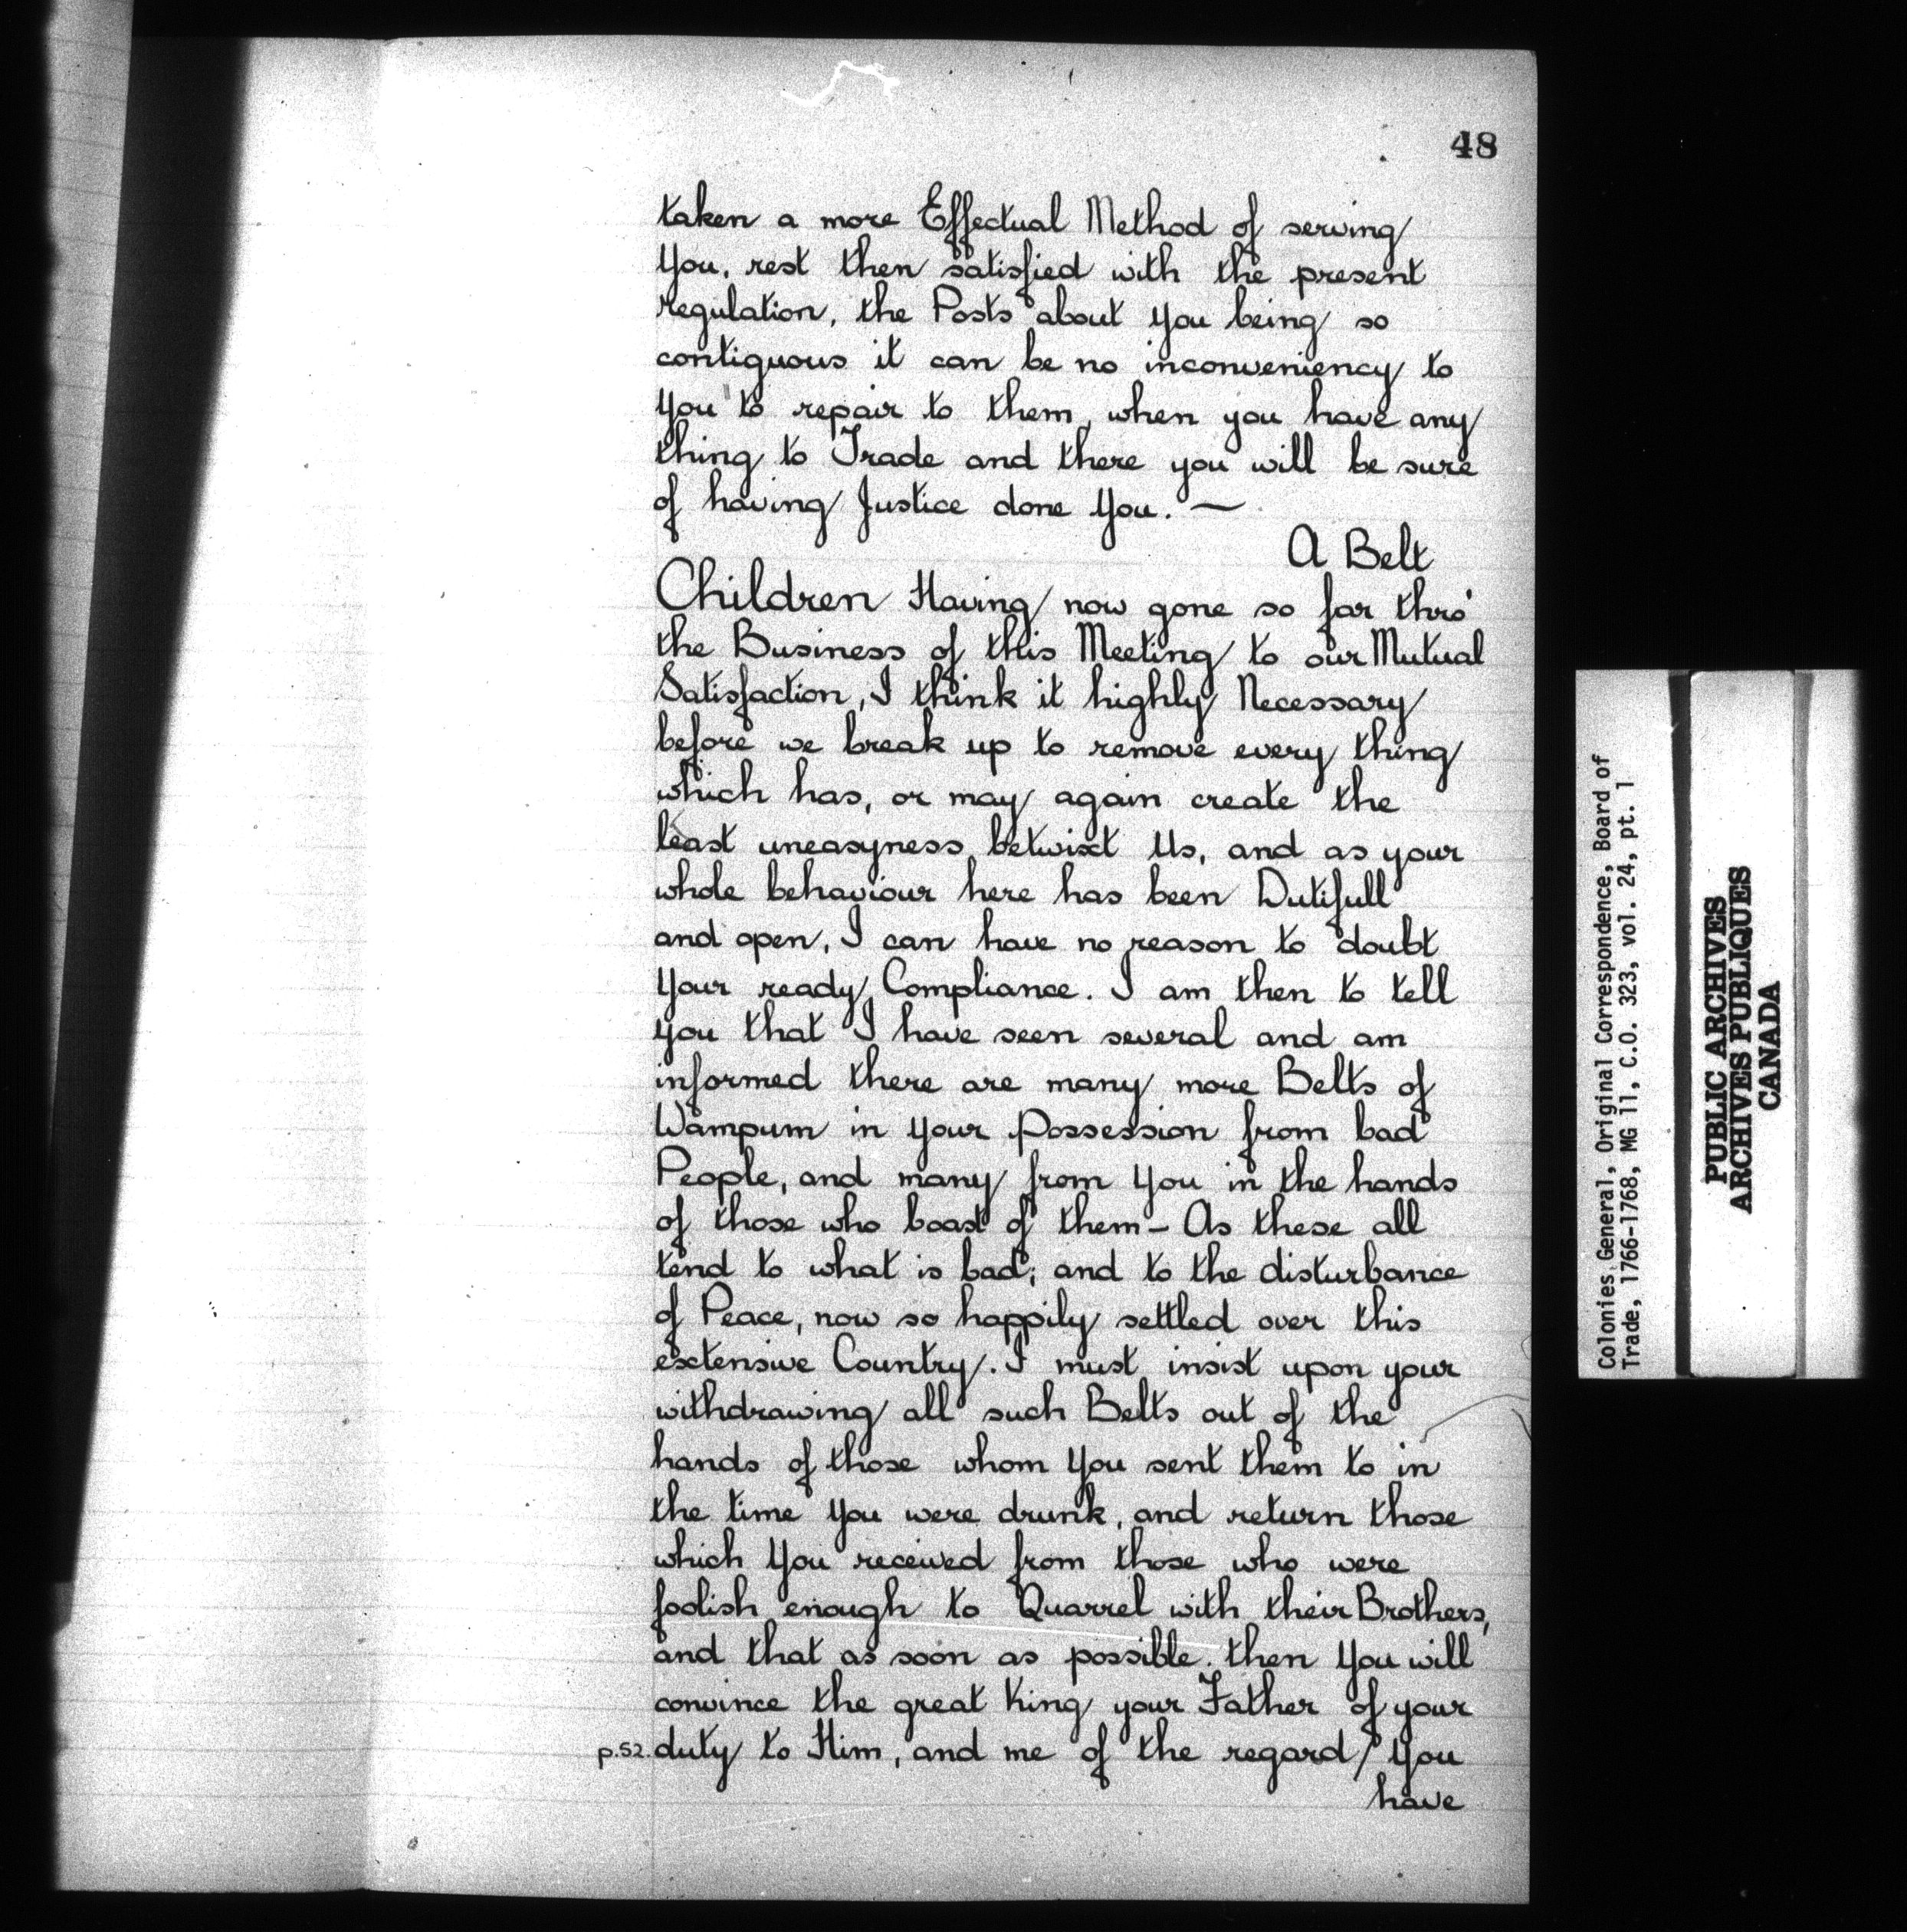 48
taken a more Effectual Method of serving
You, rest then satisfied with the present
regulation, the Posts about You being so
contiguous it can be no inconveniency to
You to repair to them, when you have any
thing to Trade and there you will be sure
of having Justice done You. —
A Belt
Children Having now gone so far thro'
the Business of this Meeting to our Mutual
Satisfaction, I think it highly Necessary
before we break up to remove every thing
which has, or may again create the
least uneasyness betwixt Us, and as your
whole behaviour here has been Dutifull
and open, I can have no reason to doubt
Your ready Compliance. I am then to tell
you that I have seen several and am
informed there are many more Belts of
Wampum in Your Possession from bad
People, and many from You in the hands
of those who boast of them — As these all
tend to what is bad; and to the disturbance
of Peace, now so happily settled over this
extensive Country. I must insist upon your
withdrawing all such Belts out of the
hands of those whom You sent them to in
the time You were drunk, and return those
which You received from those who were
foolish enough to Quarrel with their Brothers,
and that as soon as possible. then You will
convince the great King your Father of your
p.52. duty to Him, and me of the regard / You
have
Colonies General, Original Correspondence, Board of
Trade, 1766-1768, MG 11, C.O. 323, vol. 24, pt. 1
PUBLIC ARCHIVES
ARCHIVES PUBLIQUES
CANADA